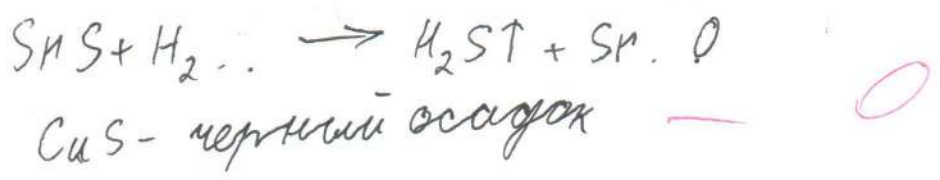 SnS + H₂.. → H₂S↑ + Sn. O
CuS - черный осадок — 0